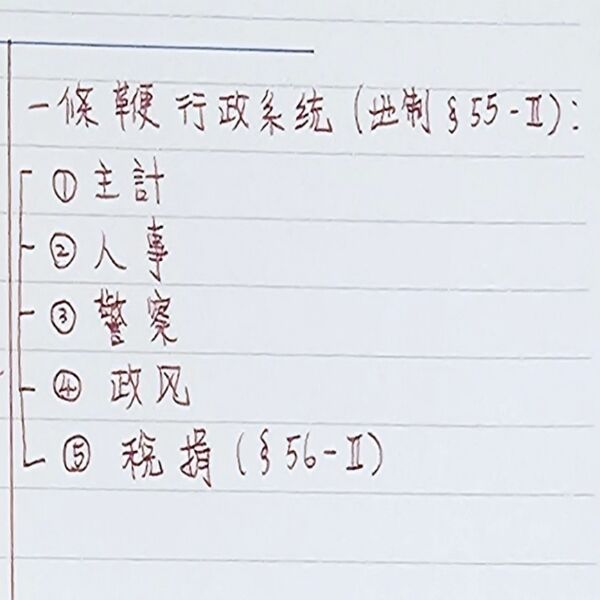 一條鞭行政系统(地制§55-Ⅱ):
①主計
②人事
③警察
④政风
⑤稅捐(§56-Ⅱ)